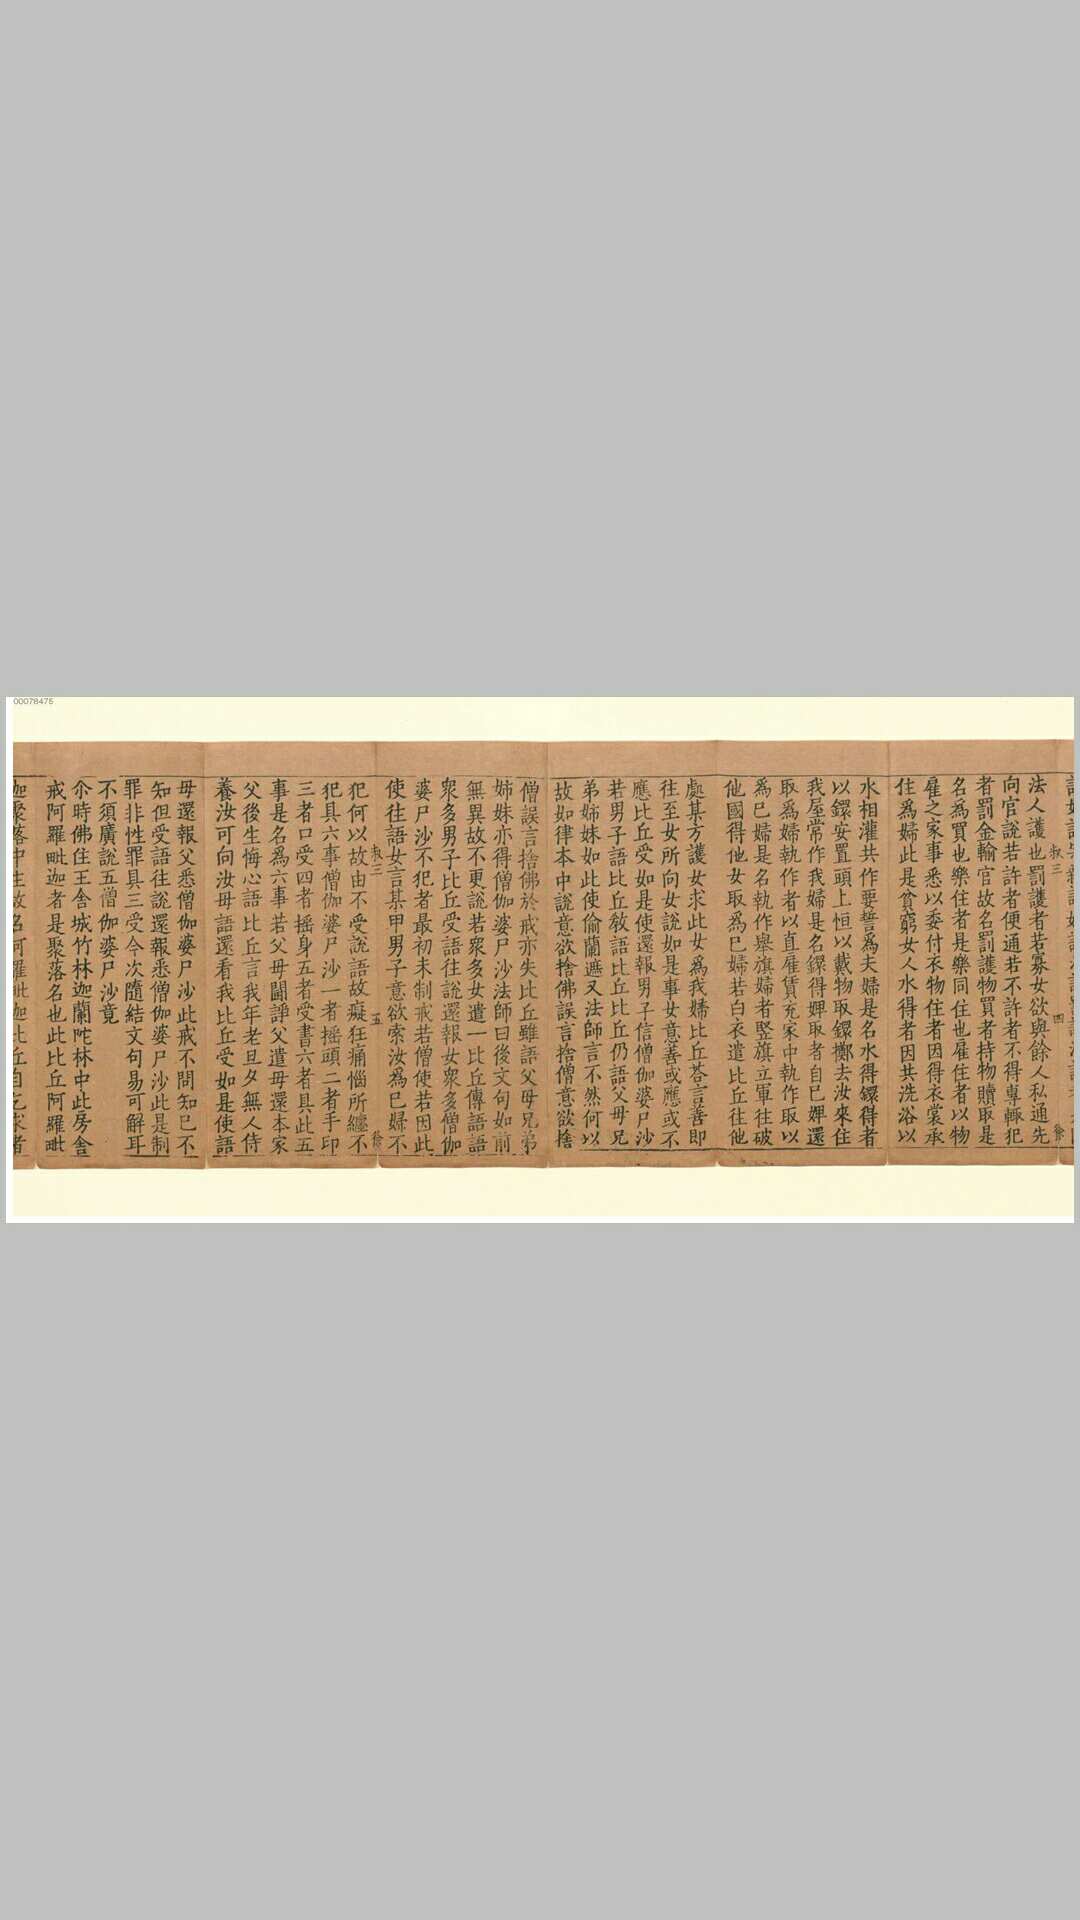 00078475
法人護也罰護者若寡女欲與餘人私通先
向官說若許者便通若不許者不得專輒犯
者罰金輸官故名罰護物買者持物贖取是
名為買也樂住者是樂同住也雇住者以物
雇之家事悉以委付衣物住者因得衣裳承
住為婦此是貧窮女人水得者因共洗浴以
水相灌共作要誓為夫婦是名水得鐶得者
以鐶安置頭上恒以戴物取鐶擲去汝來住
我屋常作我婦是名鐶得婢取者自己婢還
取為婦執作者以直雇賃充家中執作取以
為己婦是名執作舉旗婦者竪旗立軍往破
他國得他女取為己婦若白衣遣比丘往他
處某方護女求此女為我婦比丘荅言善即
往至女所向女說如是事女意善或應或不
應比丘受如是使還報男子信僧伽婆尸沙
若男子語比丘教語比丘比丘仍語父母兄
弟姊妹如此使偷蘭遮又法師言不然何以
故如律本中說意欲捨佛誤言捨僧意欲捨
僧誤言捨佛於戒亦失比丘雖語父母兄弟
姊妹亦得僧伽婆尸沙法師曰後文句如前
無異故不更說若衆多女遣一比丘傳語語
衆多男子比丘受語往說還報女衆多僧伽
婆尸沙不犯者最初未制戒若僧使若因此
使往語女言某甲男子意欲索汝為己婦不
犯何以故由不受說語故癡狂痛惱所纏不
犯具六事僧伽婆尸沙一者摇頭二者手印
三者口受四者摇身五者受書六者具此五
事是名為六事若父母鬪諍父遣母還本家
父後生悔心語比丘言我年老旦夕無人侍
養汝可向汝母語還看我比丘受如是使語
母還報父悉僧伽婆尸沙此戒不問知已不
知但受語往說還報悉僧伽婆尸沙此是制
罪非性罪具三受今次隨結文句易可解耳
不須廣說五僧伽婆尸沙竟
尒時佛住王舍城竹林迦蘭陀林中此房舍
戒阿羅毗迦者是聚落名也此比丘阿羅毗
迦聚落中生故名阿羅毗迦比丘自乞求者